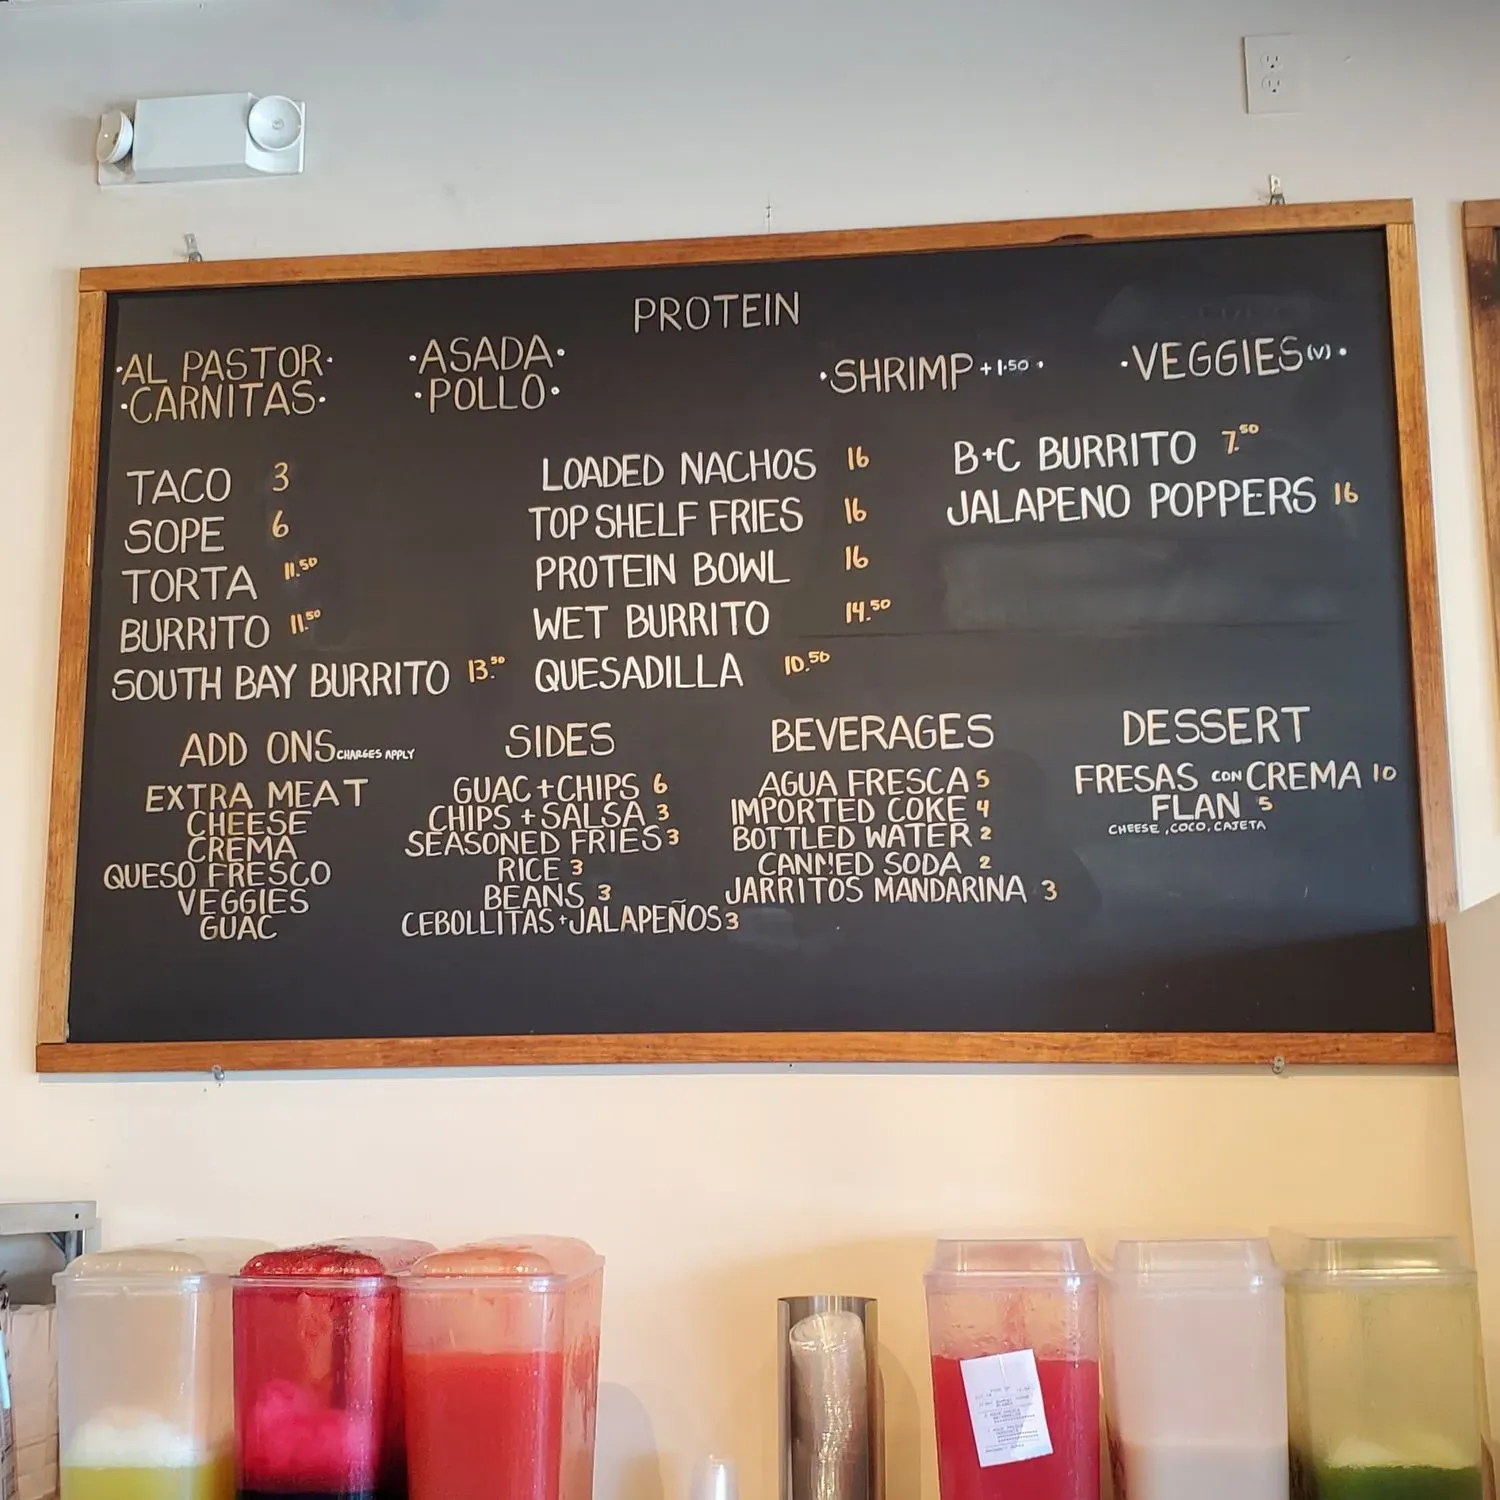 PROTEIN
·AL PASTOR·
·CARNITAS·
·ASADA·
·POLLO·
·SHRIMP +1.50 ·
·VEGGIES (V) ·
TACO 3
SOPE 6
TORTA 11.50
BURRITO 11.50
SOUTH BAY BURRITO 13.50
LOADED NACHOS 16
TOP SHELF FRIES 16
PROTEIN BOWL 16
WET BURRITO 14.50
QUESADILLA 10.50
B+C BURRITO 7.50
JALAPENO POPPERS 16
ADD ONS CHARGES APPLY
EXTRA MEAT
CHEESE
CREMA
QUESO FRESCO
VEGGIES
GUAC
SIDES
GUAC + CHIPS 6
CHIPS + SALSA 3
SEASONED FRIES 3
RICE 3
BEANS 3
CEBOLLITAS + JALAPEÑOS 3
BEVERAGES
AGUA FRESCA 5
IMPORTED COKE 4
BOTTLED WATER 2
CANNED SODA 2
JARRITOS MANDARINA 3
DESSERT
FRESAS CON CREMA 10
FLAN 5
CHEESE, COCO, CAJETA